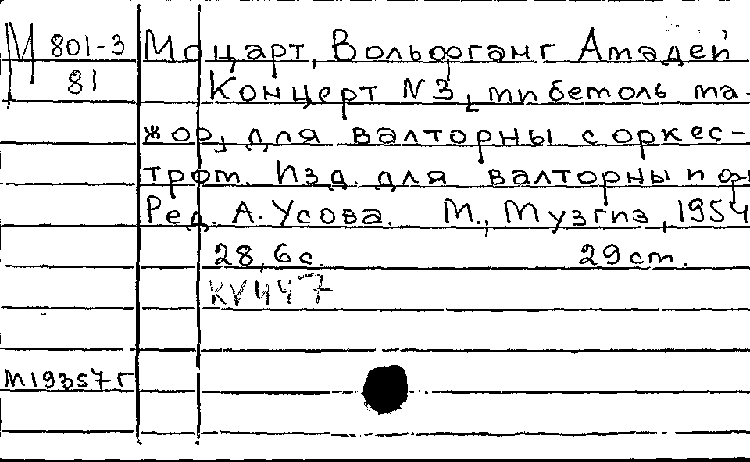 М 801-3
81
Моцарт, Вольфганг Амадей
Концерт №3, ми бемоль ма-
жор, для валторны с оркес-
тром. Изд. для валторны и
Ред. А. Усова. М., Музгиз, 1954
28, 6 с. 29 cm.
KV 447
М19357г